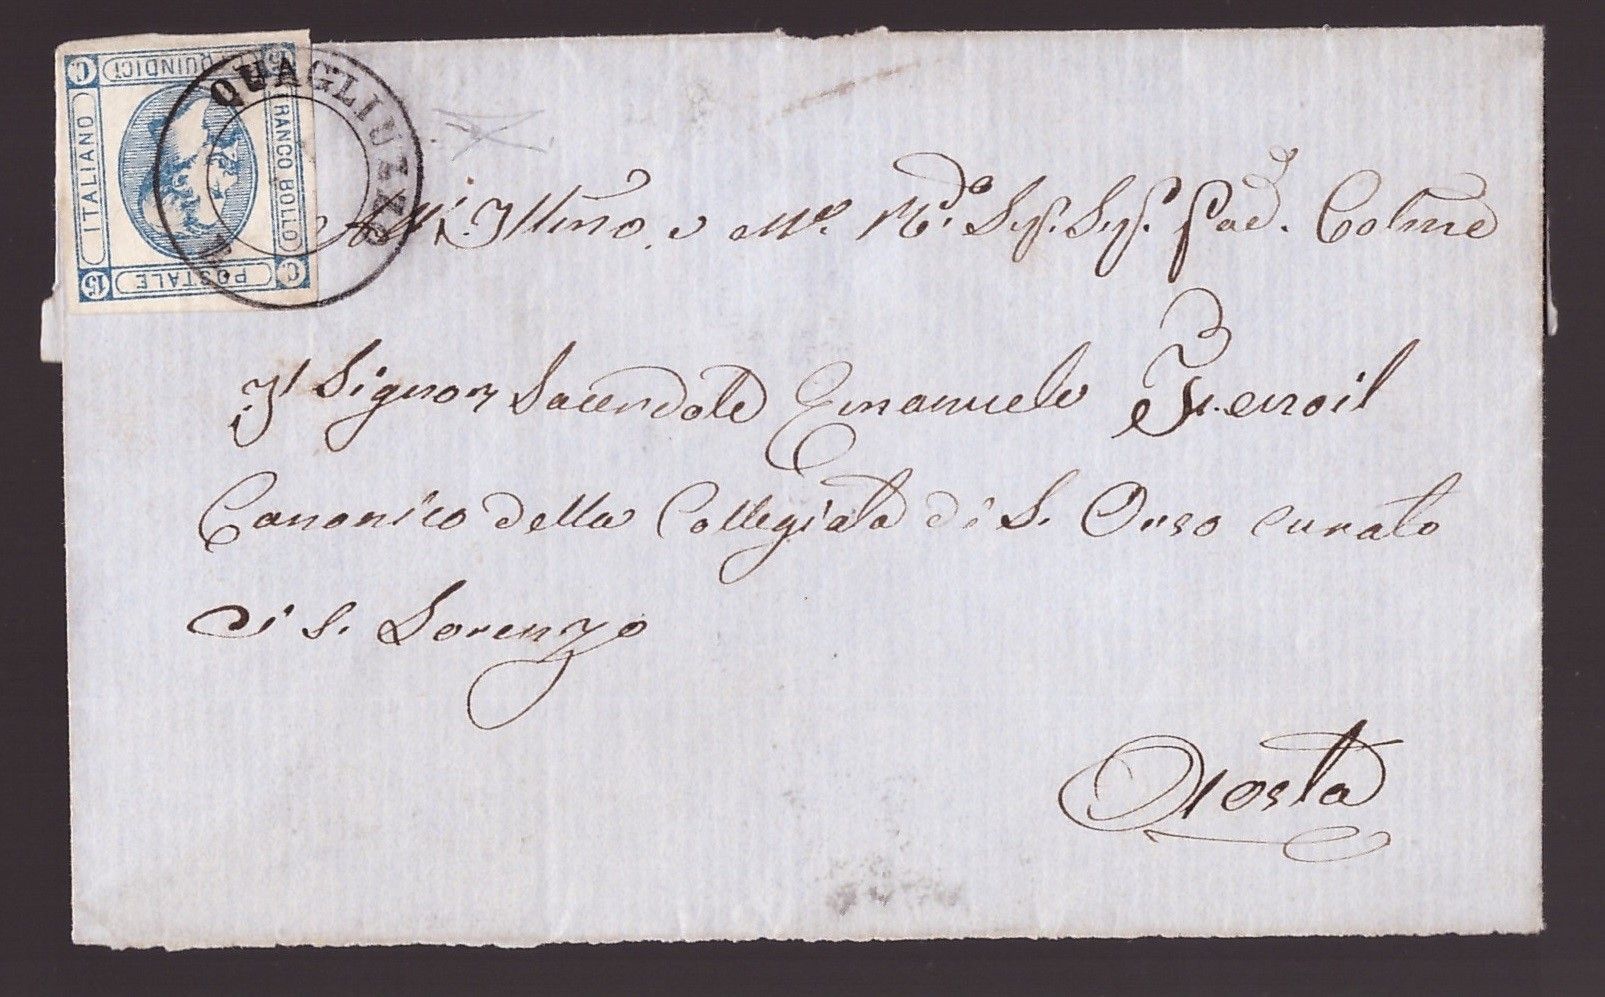 C QUINDICI 15
FRANCO BOLLO
ITALIANO
15 POSTALE C
QUAGLIUZZO
All'Illmo. e M.º R.do Sig. Sig. Pad. Colmo
Il Signor Sacerdote Emanuele
Canonico della Collegiata di S. Orso curato
di S. Lorenzo
Aosta